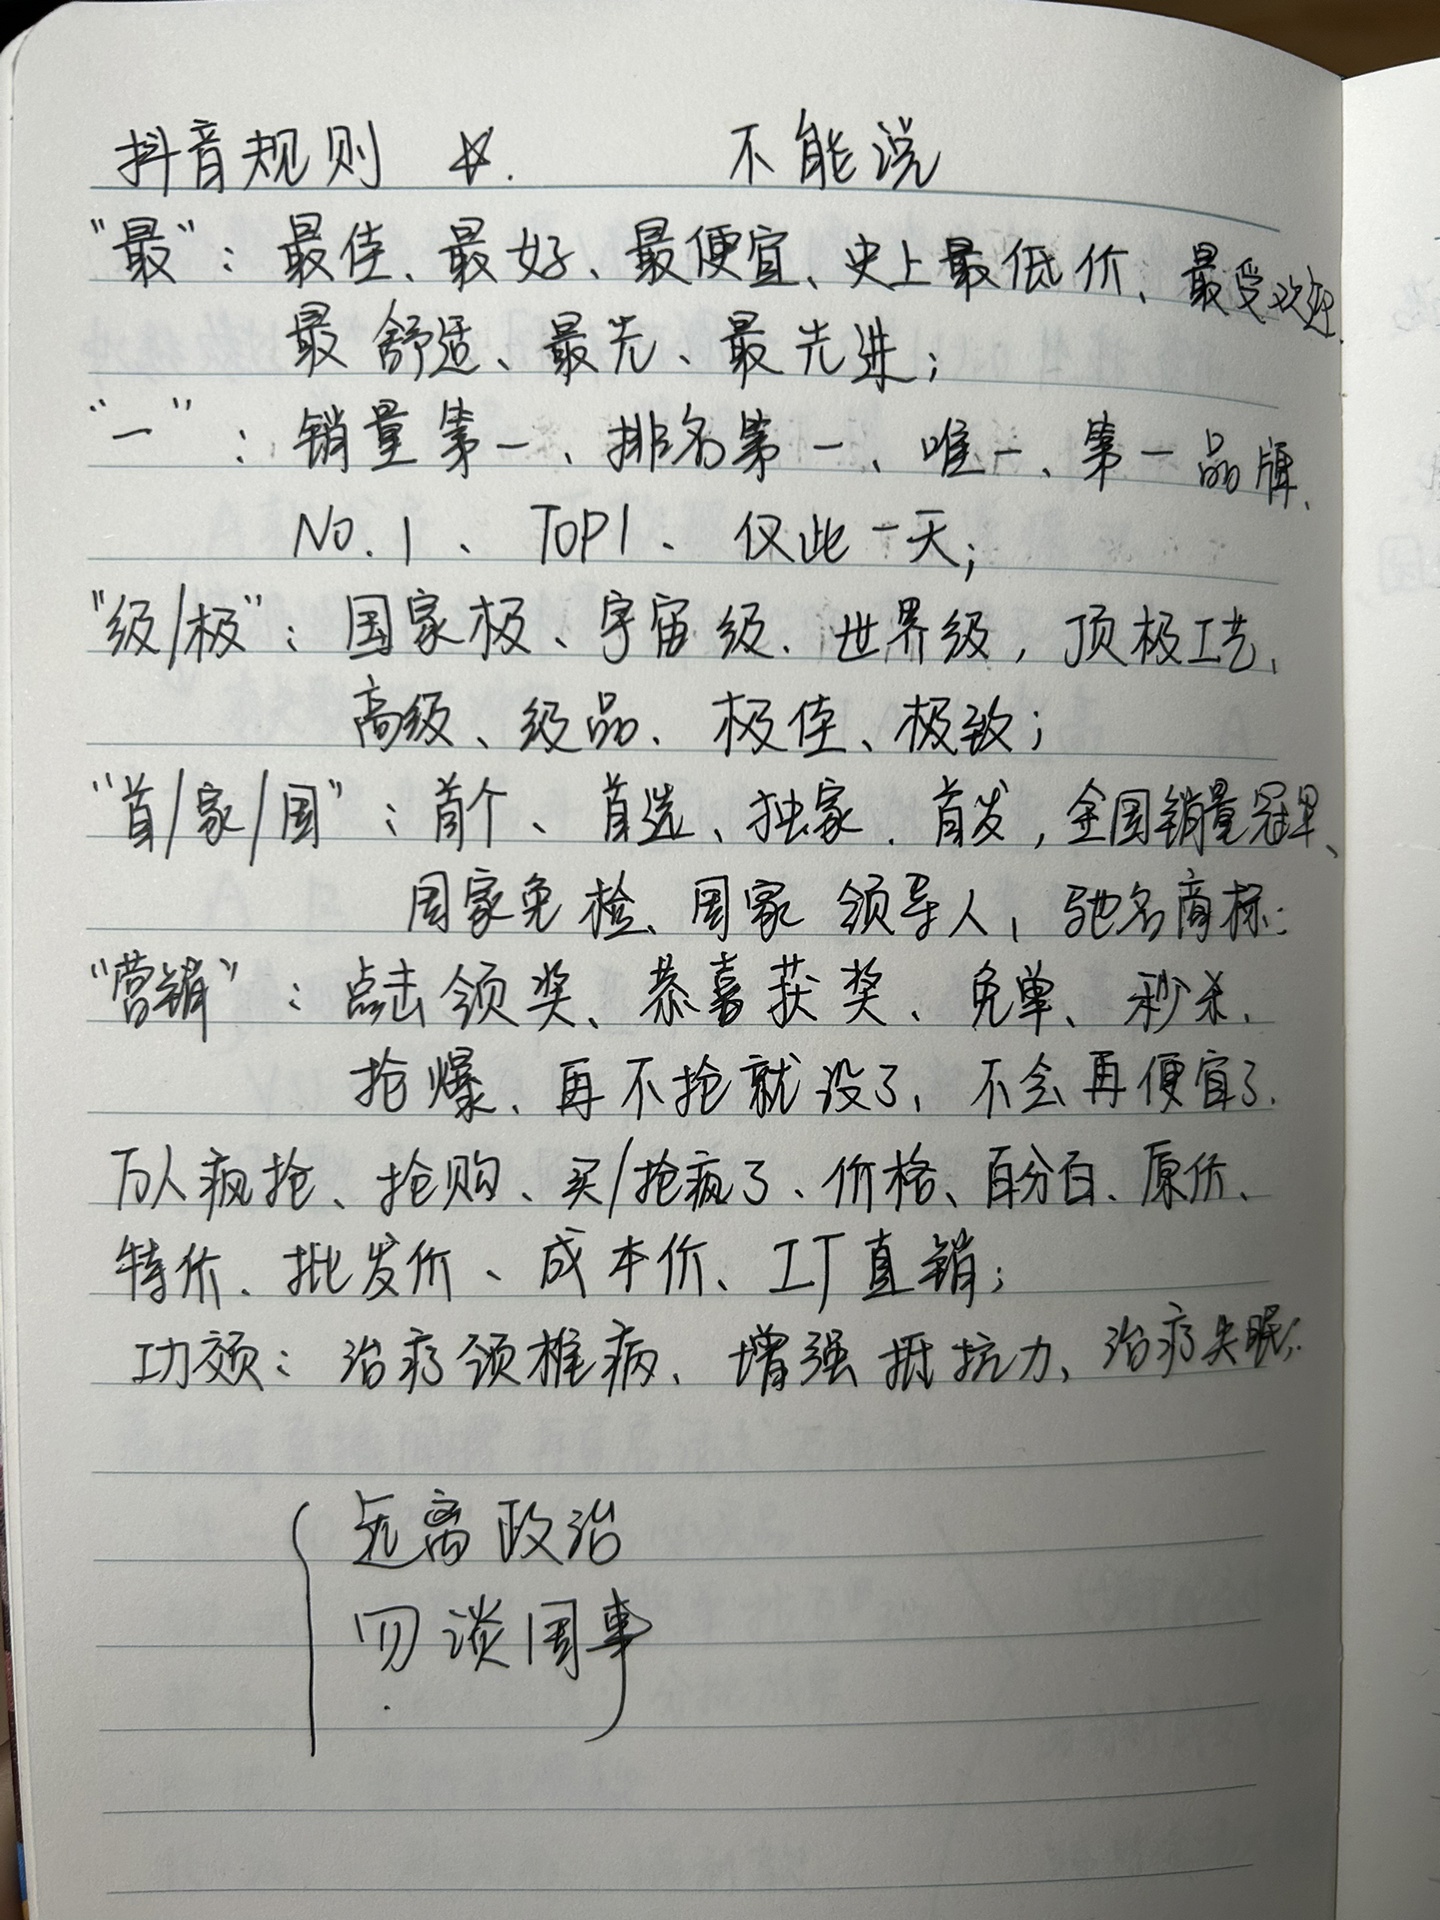 抖音规则 ☆. 不能说
"最"：最佳、最好、最便宜、史上最低价、最受欢迎、
最舒适、最先、最先进；
"一"：销量第一、排名第一、唯一、第一品牌、
No.1、TOP1、仅此一天；
"级/极"：国家极、宇宙级、世界级，顶极工艺、
高级、级品、极佳、极致；
"首/家/国"：首个、首选、独家、首发，全国销量冠军、
国家免检、国家领导人，驰名商标；
"营销"：点击领奖、恭喜获奖、免单、秒杀、
抢爆、再不抢就没了，不会再便宜了、
万人疯抢、抢购、买/抢疯了、价格、百分百、原价、
特价、批发价、成本价、工厂直销；
功颏：治疗颈椎病、增强抵抗力、治疗失眠；
远离政治
勿谈国事